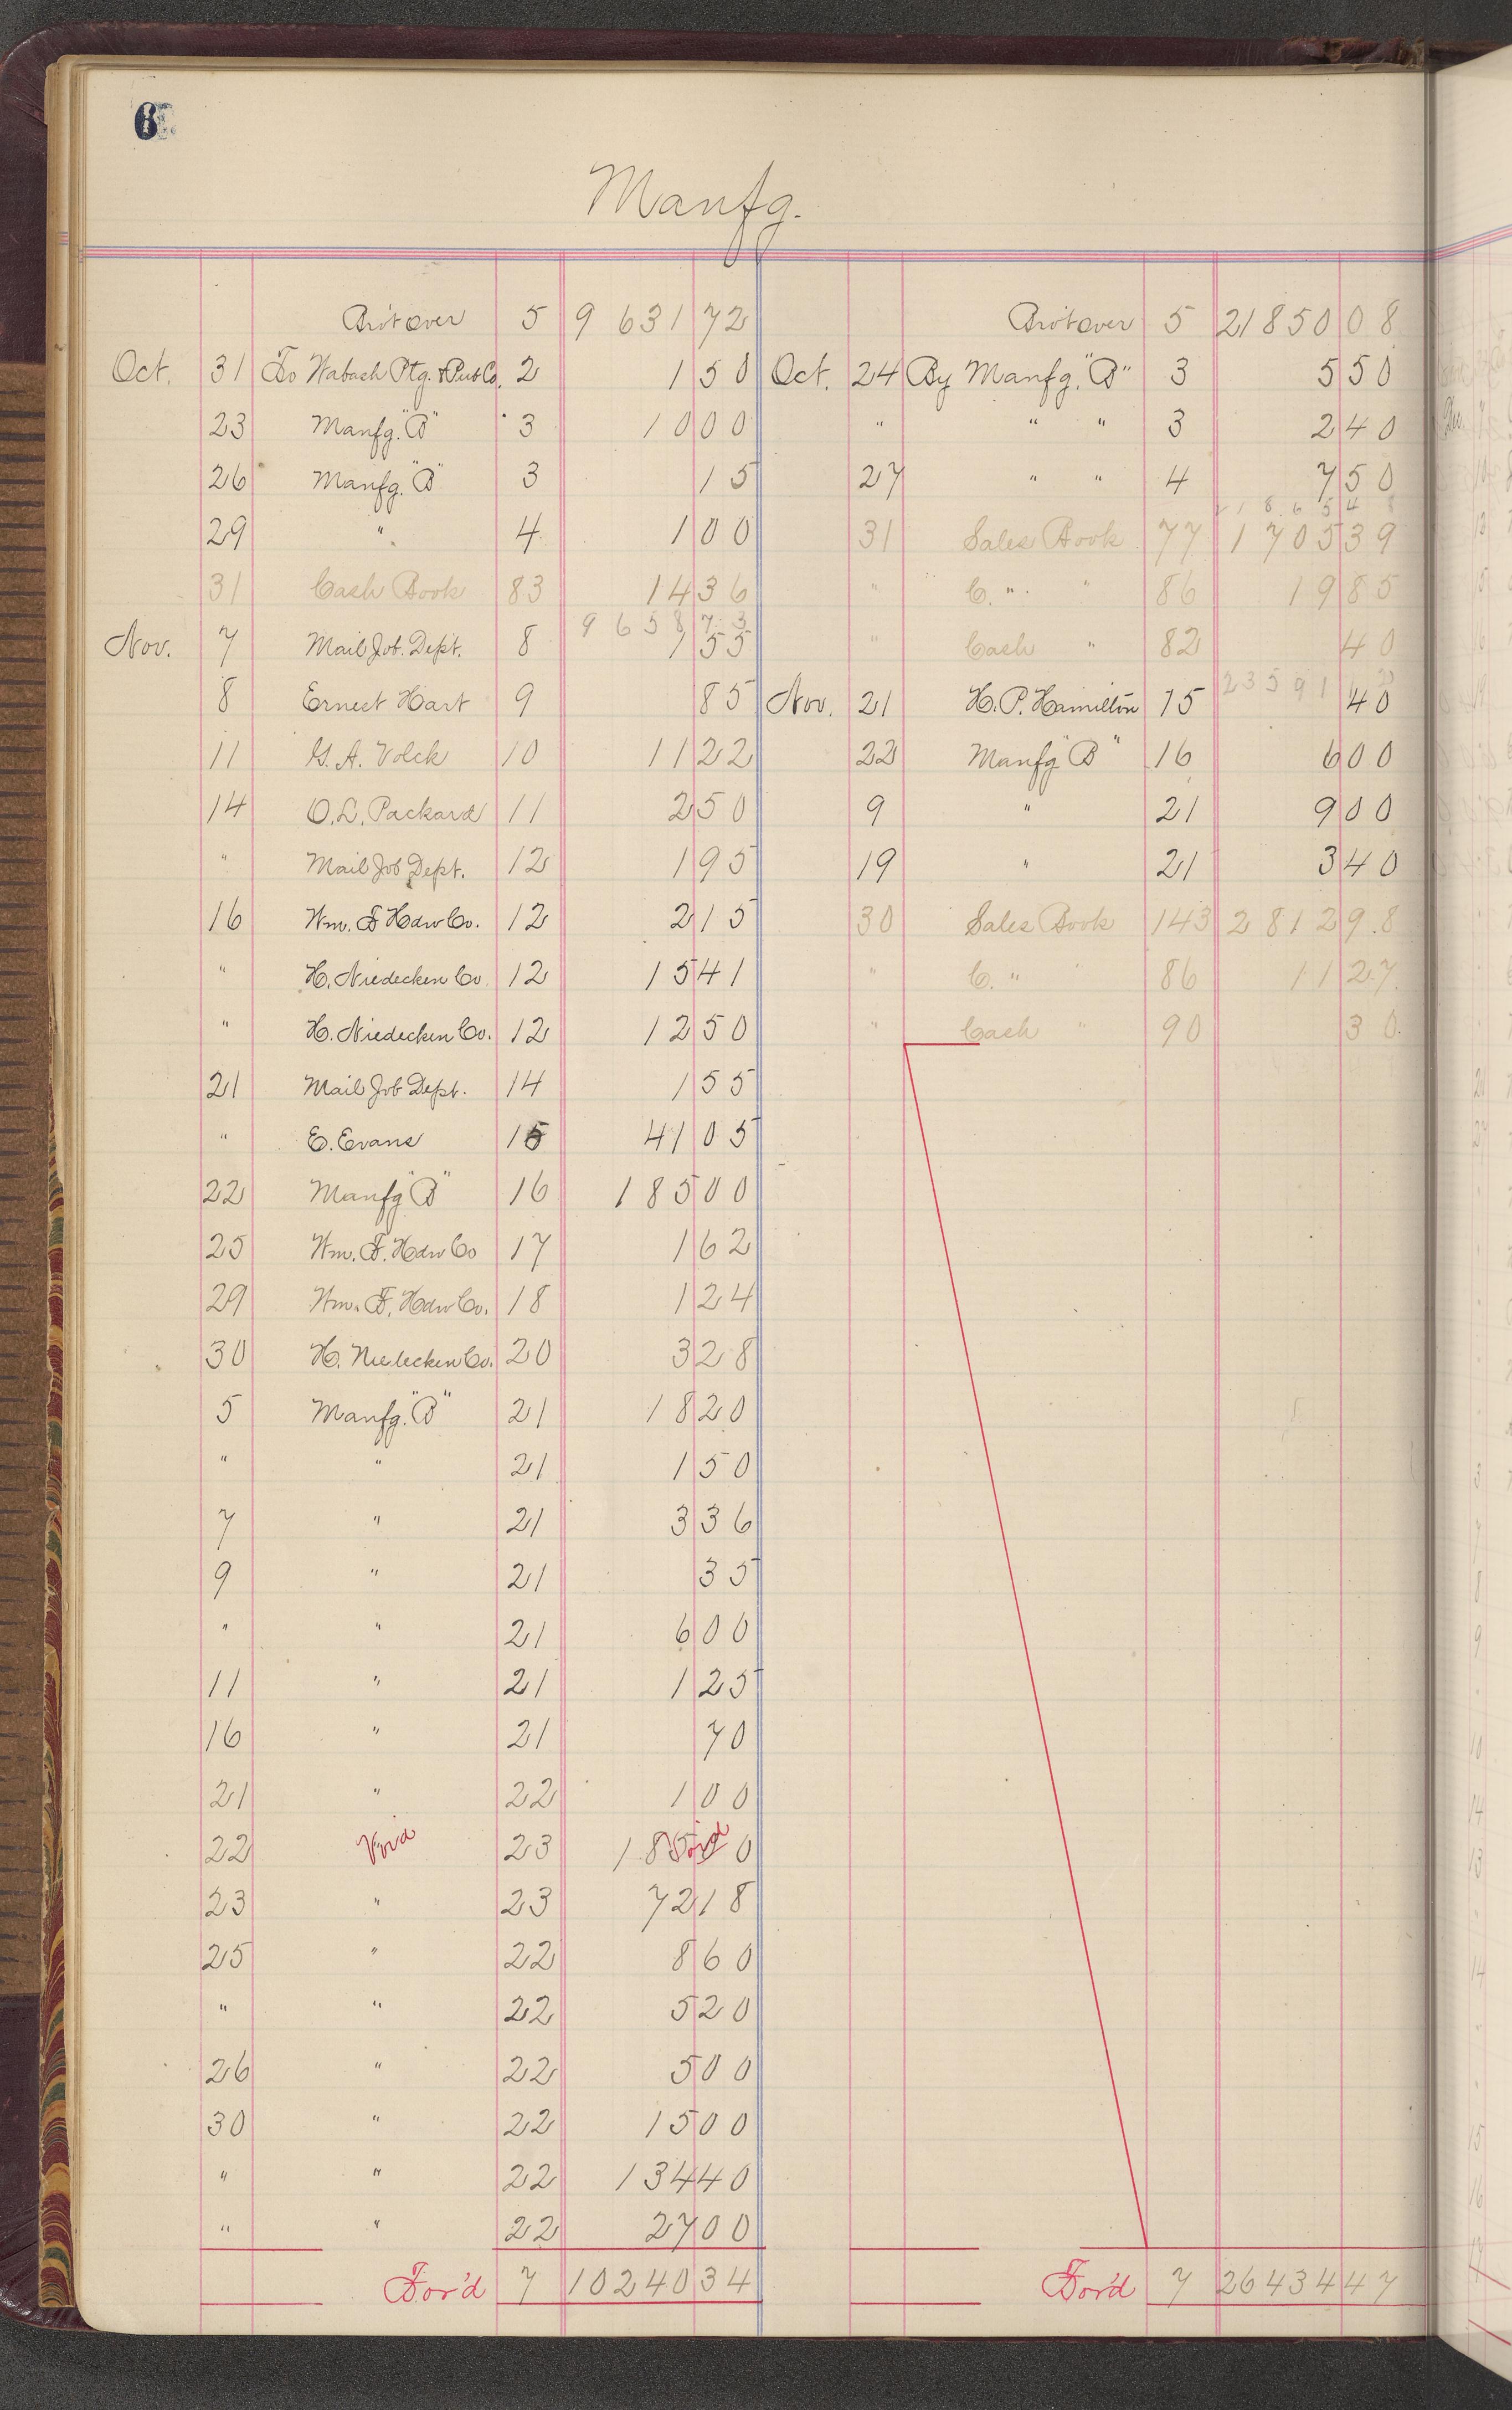 6
Manfg.
Bro't over 5 9 631 72
Oct. 31 To Wabash Ptg. & Pub Co. 2 1 50
23 Manfg. "B" 3 10 00
26 Manfg. "B" 3 15
29 " 4 1 00
31 Cash Book 83 14 36
9 658 73
Nov. 7 Mail Job. Dept. 8 1 55
8 Ernest Hart 9 85
11 G. A. Volck 10 11 22
14 O. L. Packard 11 2 50
" Mail Job Dept. 12 1 95
16 Wm. F Hdw Co. 12 2 15
" H. Niedecken Co. 12 15 41
" H. Niedecken Co. 12 12 50
21 Mail Job Dept. 14 1 55
" E. Evans 15 41 05
22 Manfg "B" 16 185 00
25 Wm. F. Hdw Co 17 1 62
29 Wm. F. Hdw Co. 18 1 24
30 H. Niedecken Co. 20 3 28
5 Manfg. "B" 21 18 20
" " 21 1 50
7 " 21 3 36
9 " 21 35
" " 21 6 00
11 " 21 1 25
16 " 21 70
21 " 22 1 00
22 Void 23 185 00 Void
23 " 23 72 18
25 " 22 8 60
" " 22 5 20
26 " 22 5 00
30 " 22 15 00
" " 22 134 40
" " 22 27 00
For'd 7 10240 34
Bro't over 5 21850 08
Oct. 24 By Manfg. "B" 3 5 50
" " " 3 2 40
27 " " 4 7 50
21 865 48
31 Sales Book 77 1 705 39
" C. " " 86 19 85
" Cash " 82 40
23 591
Nov. 21 H. P. Hamilton 15 40
22 Manfg "B" 16 6 00
9 " 21 9 00
19 " 21 3 40
30 Sales Book 143 2 812 98
" C. " " 86 11 27
" Cash " 90 30
For'd 7 26434 47